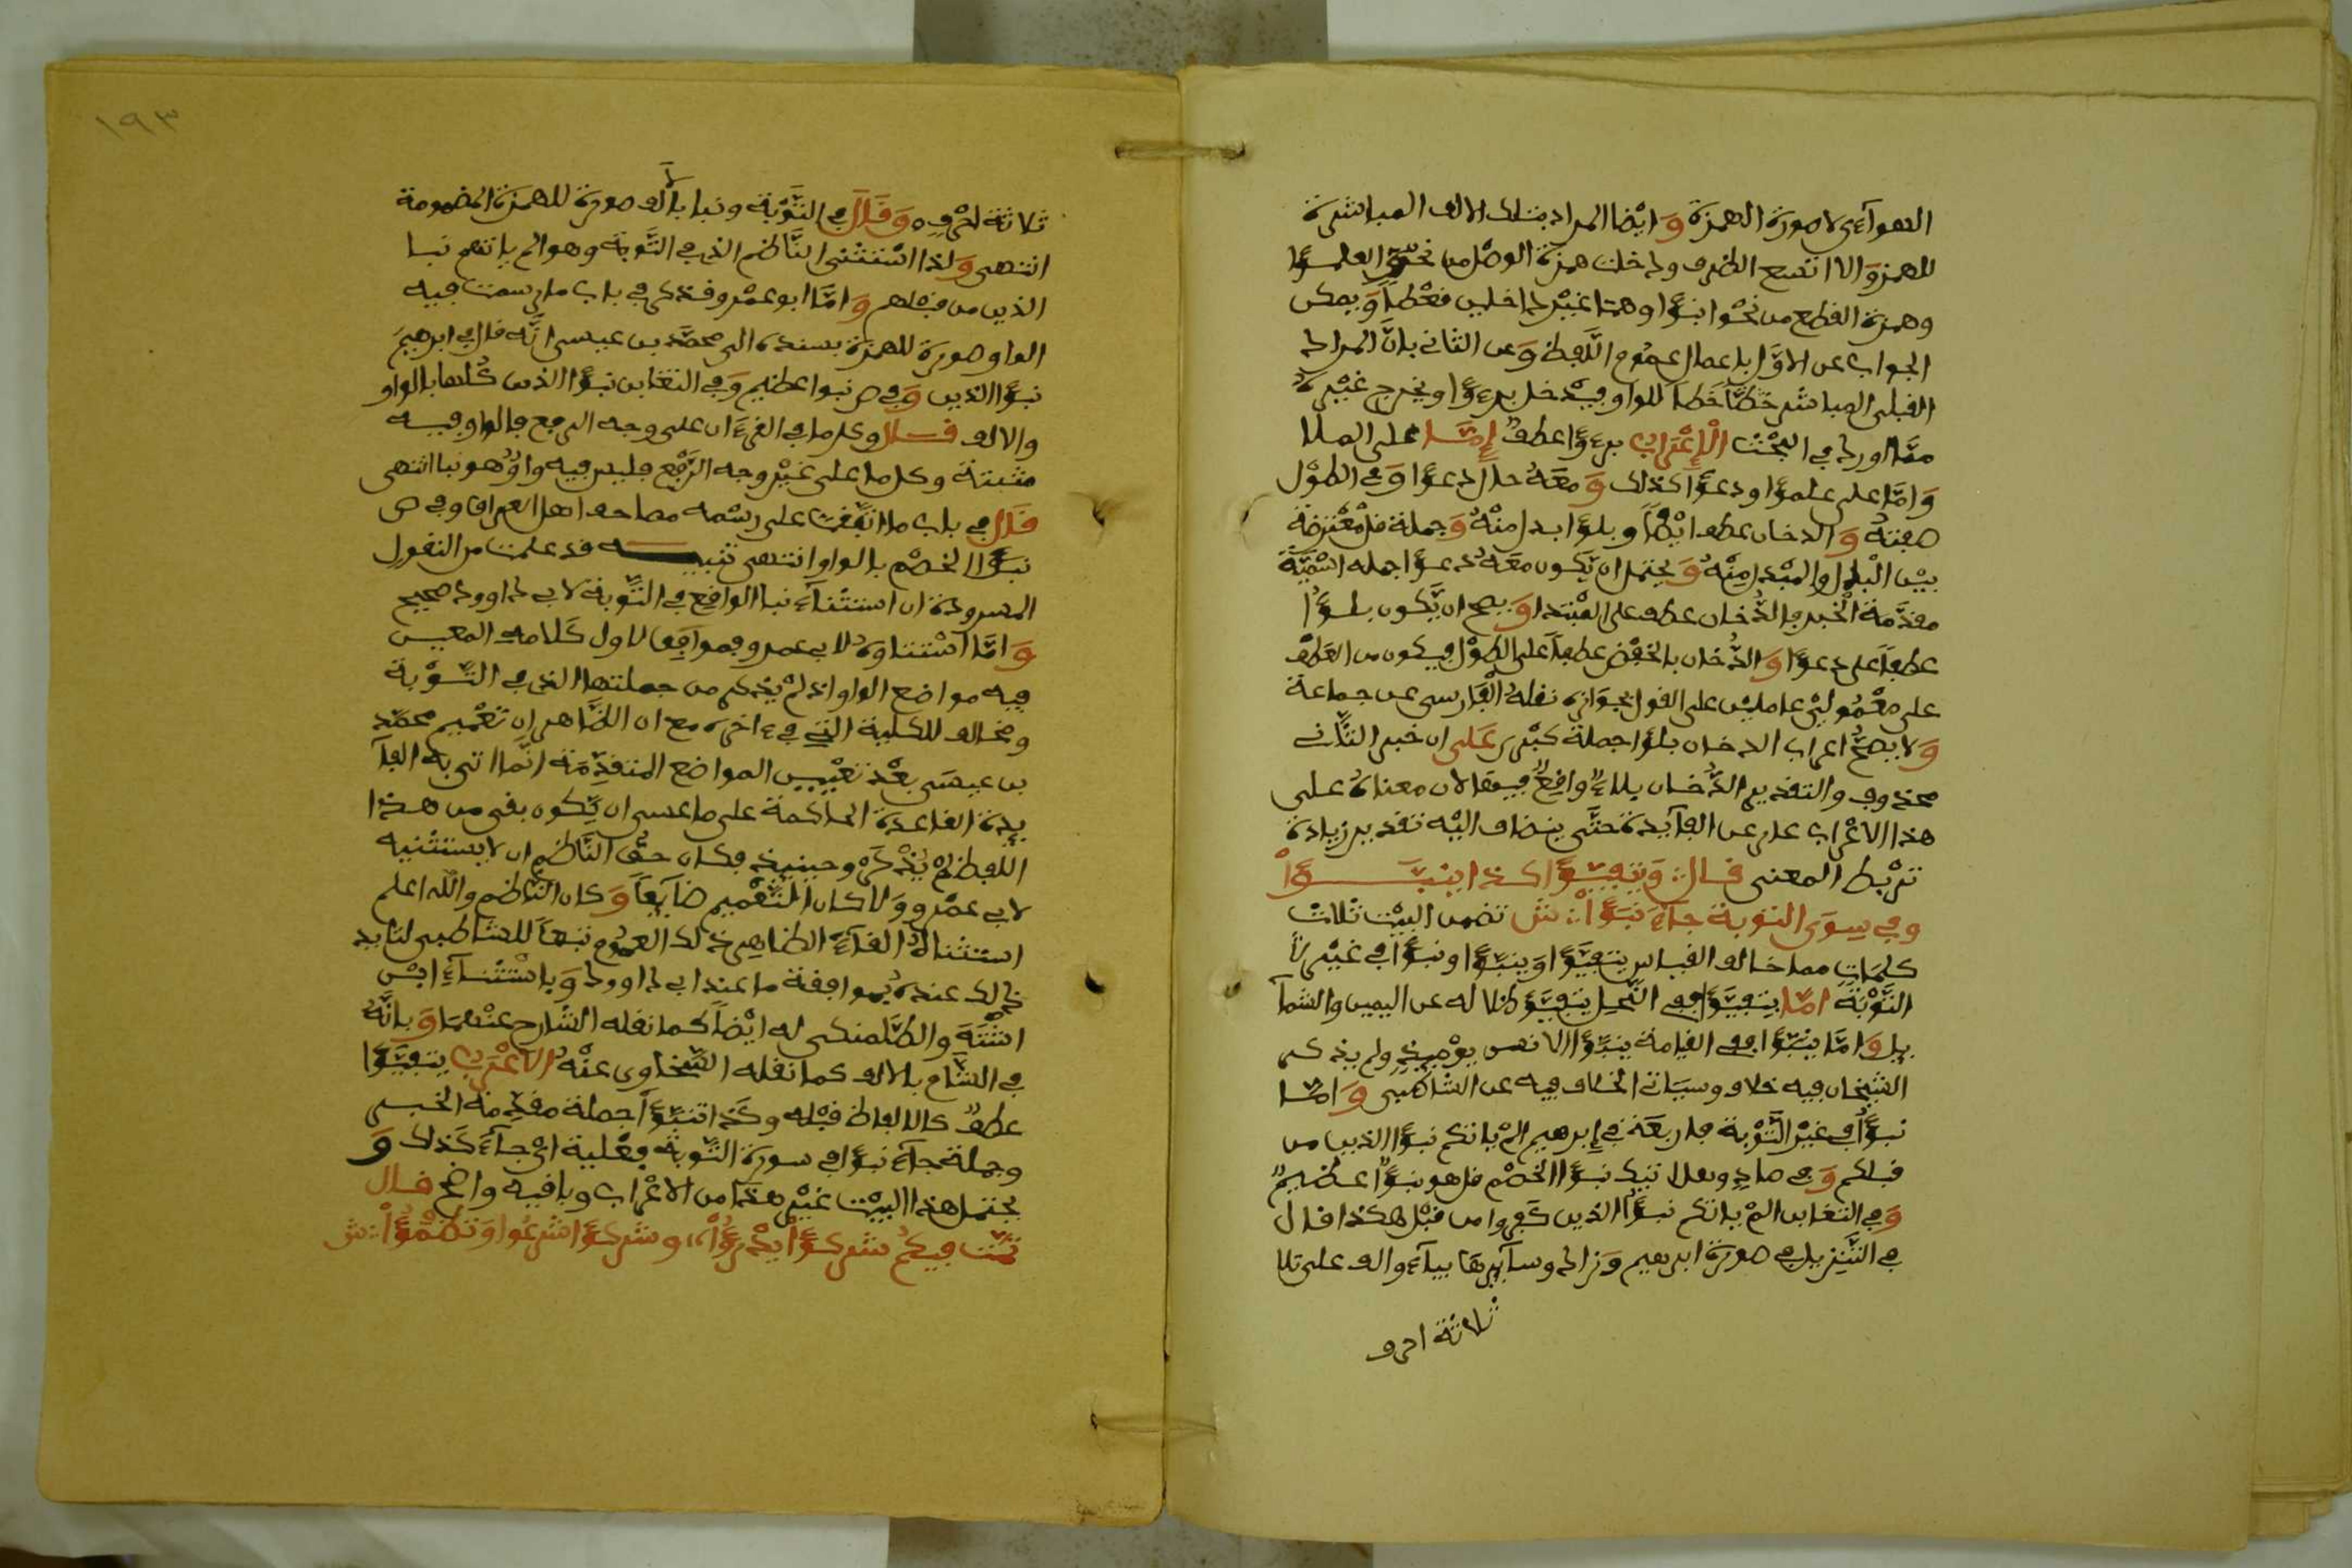 الهوآءي لا صورة الهمزة وَايْضا المراد بتلك الالف المباشرة
للهمز وَالا اتسع الظرف ودخلت همزة الوصل من نحو العلمـؤا
وهمزة القطع من نحْو انبؤا وهما غيْر داخلين فعْطا وَيمكن
الجواب عن الاوّل باعمال عموم اللّفظ وَعن الثاني بانّ المراد
القبلى المباشر خطّا خطا للواو فيدْخل برءؤا ويخرج غيْره
ممّا اورد في البحْث الْاعْرَاب برءؤا عطفٌ إمّـا على الملا
وَامّا على علمؤا ودعؤا كذلك وَمعَهُ حال دعؤا وَفي الطوْل
صفته وَالدخان عطف ايْضاً وبلؤا بدل منْهُ وَجملة قل معْترضة
بيْن الْبدل والمبْدل مِنْهُ وَيحتمل ان يّكون معَهُ دعـؤا جملة اسْميّة
مقدّمة الْخبر والدُّخان عطف على المبْتدا وَيصح ان يّكون بلـؤُا
عطفاً على دعؤا وَالدُّخان بالخفْض عطفاً على الطوْل فيكون من العَطْف
على معْمُوليْ عامليْن على القول بجوَازه نقلهُ الْفَارسي عن جماعة
وَلا يصحُّ اعراب الدخان بلؤا جملة كبْرى عَلى ان خبر الثّاني
محذوف والتقدير الدُّخان بلاءٌ واقِعٌ فيهَا لان معناهُ على
هذا الاعْراب عار عن الفآيدة حتَّى ينضاف اليْه تقدير زيادة
ترْبط المعنى قـال: وَيتفيـؤُا كـذا ينبـؤاْ
وفي سِوَى التوبة جآءَ نَبَؤُاْ: ش تضمن البيْت ثلاث
كلمَاتٍ مما خالف القياس يتفيّؤا وَينبّؤا ونبؤا في غيْر
التَّوْبَة امّا يتفيّؤا ففي النّحل يتفيّؤ ظلاله عن اليمين والشمآ
يل وَامّا ينبّؤا ففي القيامة ينبّؤا الانسن يوْميذٍ ولم يذكر
الشيْخان فيه خلاف وسيَاتى الخلاف فيه عن الشاطبى وَامّـا
نبؤُاْ في غيْر التَّوْبة فاربَعَة في إبرهيم المْ ياتكم نبؤا الذين من
قبلكم وَفي صادٍ وهل اتيك نبؤا الخصْم قل هو نبؤٌا عـظيمٌ
وَفي التغابن المْ ياتكم نبؤُا الذين كفروا من قبْل هكذا قال
في التَّنزيل في صورة ابرهيم وَزاد وسآيرهَا بيآءٍ والف على تلا
ثلاثة احرف
١٩٣
ثلاثة احْرفٍ وَقَالَ في التَّوْبة ونبا بالف صورة للهمزة المضمومة
انتهى وَلذا اسْتثْنى النّاظم الذي في التَّوبة وهو الم ياتهم نبا
الذين من قبْلهم وَامّا ابو عمْرو فذكر في باب ما رسمت فيه
الواو صورة للهمزة بسنده الى محمّد بن عيسى انّه قال في ابرهيمَ
نبؤُا الذين وَفي ص نبوا عظيم وَفي التغابن نبؤا الذين كُلها بالواو
والالف قــال وكل ما في القرءَان على وجه الرفع فالواو فيـه
مثبتة وكل ما على غيْر وجه الرَّفع فليس فيه واوٌ وهو نبا انتهى
قَالَ في باب ما اتّفقت على رسْمه مصاحف اهل العراق وفي ص
نبؤا الخصْم بالواو انتهى تنبيـــه قد علمت من النقول
المسرودة ان استثنآء نبا الواقع في التَّوبة لابي داوود صحيح
وَامّا اسْتثناوهُ لابي عمرو فموافِق لاول كَلامه المعيـن
فيه مواضع الواو اذ لمْ يذكر من جملتها الذي في التَّوْبة
ومخالف للكلية التي في ءاخره مع ان الظّاهر ان تعْميم محمّد
بن عيسَى بعْد تعْيين المواضع المتقدِّمَة انّما اتى به الفآ
يدة القاعدة الحاكمة على ما عسى ان يّكون بقى من هذا
اللفظ لمْ يذْكرْهُ وحينيذ فكان حقّ النّاظم ان لا يستثنيه
لابي عمْرو وَالا كان التّعْميم ضآيَعاً وَكان النّاظم والله اعلم
استثناهُ الغآءً لظاهر ذلك العموم تبعاً للشاطبى لتايد
ذالك عندهُ بموافقة ما عند ابي داوود وَباسْتثْنآءِ ابْن
اشْتَةَ والطَّلمنكى له ايْضاً كما نقله الشّارح عنْهمَا وَبانَّهُ
في الشّام بالالف كما نقله السّخاوى عنْهُ الاعْرَاب يتفيّؤا
عطفٌ كالالفاظ قبْله وكَذا ينبّؤا جملة مقدّمة الخبـر
وجملة جآء نبؤا في سورة التّوبة فعْلية ايْ جآء كذلك وَ
يحتمل هذا البيْت غيْر هذا من الاعْراب وباقيه واضح قـال
ثمّت فيكُم شركـؤاْ يدْرؤُاْ،، وشركؤا شرعُوا وَتظْمؤُاْ: ش